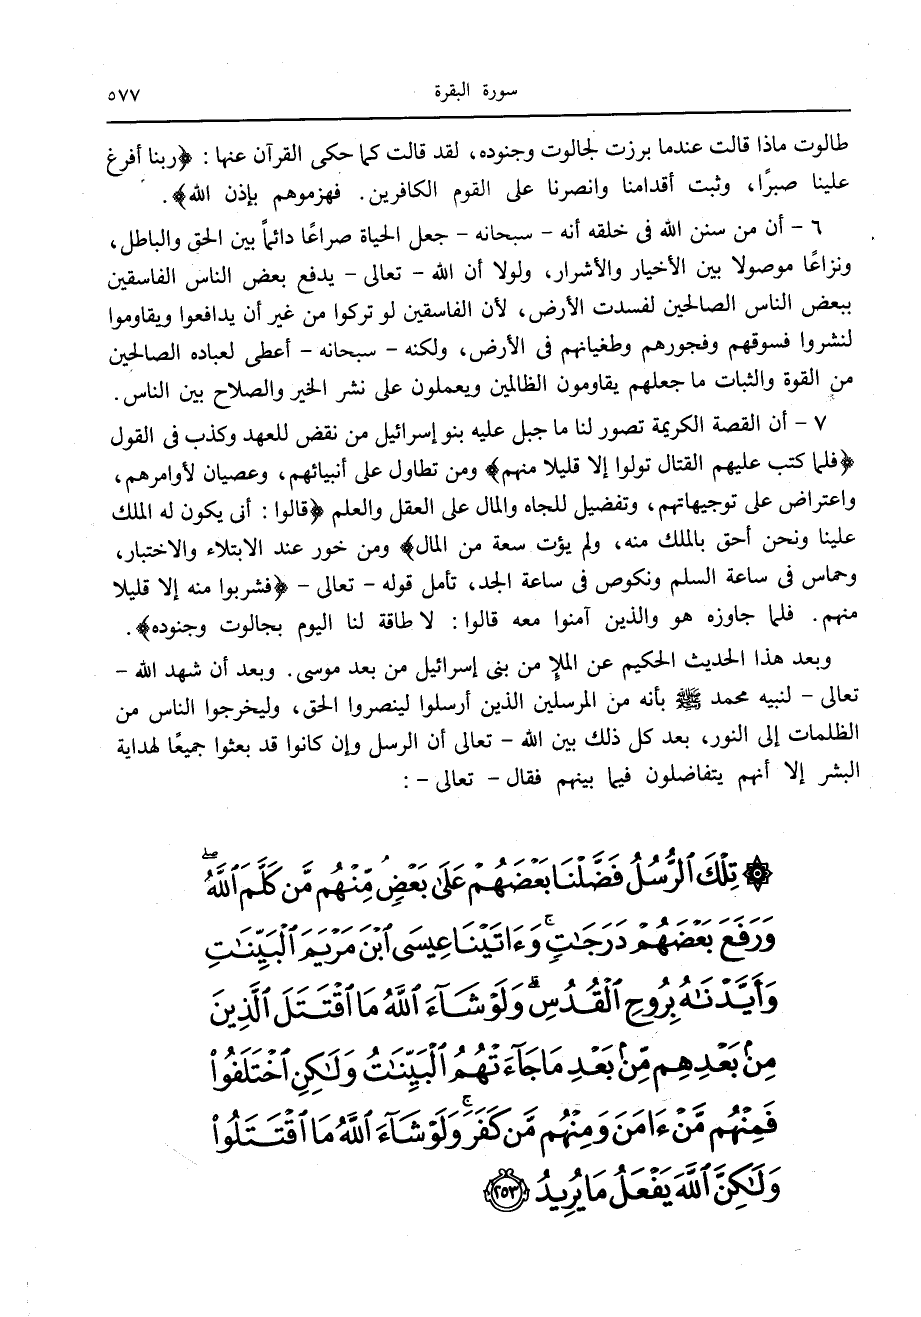 سورة البقرة ٥٧٧
طالوت ماذا قالت عندما برزت لجالوت وجنوده، لقد قالت كما حكى القرآن عنها: ﴿ربنا أفرغ
علينا صبرًا، وثبت أقدامنا وانصرنا على القوم الكافرين. فهزموهم بإذن الله﴾.
٦ - أن من سنن الله فى خلقه أنه - سبحانه - جعل الحياة صراعًا دائماً بين الحق والباطل،
ونزاعًا موصولا بين الأخيار والأشرار، ولولا أن الله - تعالى - يدفع بعض الناس الفاسقين
ببعض الناس الصالحين لفسدت الأرض، لأن الفاسقين لو تركوا من غير أن يدافعوا ويقاوموا
لنشروا فسوقهم وفجورهم وطغيانهم فى الأرض، ولكنه - سبحانه - أعطى لعباده الصالحين
من القوة والثبات ما جعلهم يقاومون الظالمين ويعملون على نشر الخير والصلاح بين الناس.
٧ - أن القصة الكريمة تصور لنا ما جبل عليه بنو إسرائيل من نقض للعهد وكذب فى القول
﴿فلما كتب عليهم القتال تولوا إلا قليلا منهم﴾ ومن تطاول على أنبيائهم، وعصيان لأوامرهم،
واعتراض على توجيهاتهم، وتفضيل للجاه والمال على العقل والعلم ﴿قالوا: أنى يكون له الملك
علينا ونحن أحق بالملك منه، ولم يؤت سعة من المال﴾ ومن خور عند الابتلاء والاختبار،
وحماس فى ساعة السلم ونكوص فى ساعة الجد، تأمل قوله - تعالى - ﴿فشربوا منه إلا قليلا
منهم. فلما جاوزه هو والذين آمنوا معه قالوا: لا طاقة لنا اليوم بجالوت وجنوده﴾.
وبعد هذا الحديث الحكيم عن الملإ من بنى إسرائيل من بعد موسى. وبعد أن شهد الله -
تعالى - لنبيه محمد ﷺ بأنه من المرسلين الذين أرسلوا لينصروا الحق، وليخرجوا الناس من
الظلمات إلى النور، بعد كل ذلك بين الله - تعالى أن الرسل وإن كانوا قد بعثوا جميعًا لهداية
البشر إلا أنهم يتفاضلون فيما بينهم فقال - تعالى -:
۞ تِلْكَ ٱلرُّسُلُ فَضَّلْنَا بَعْضَهُمْ عَلَىٰ بَعْضٍ مِّنْهُم مَّن كَلَّمَ ٱللَّهُ ۖ
وَرَفَعَ بَعْضَهُمْ دَرَجَٰتٍ ۚ وَءَاتَيْنَا عِيسَى ٱبْنَ مَرْيَمَ ٱلْبَيِّنَٰتِ
وَأَيَّدْنَٰهُ بِرُوحِ ٱلْقُدُسِ ۗ وَلَوْ شَآءَ ٱللَّهُ مَا ٱقْتَتَلَ ٱلَّذِينَ
مِنۢ بَعْدِهِم مِّنۢ بَعْدِ مَا جَآءَتْهُمُ ٱلْبَيِّنَٰتُ وَلَٰكِنِ ٱخْتَلَفُوا۟
فَمِنْهُم مَّنْ ءَامَنَ وَمِنْهُم مَّن كَفَرَ ۚ وَلَوْ شَآءَ ٱللَّهُ مَا ٱقْتَتَلُوا۟
وَلَٰكِنَّ ٱللَّهَ يَفْعَلُ مَا يُرِيدُ ﴿٢٥٣﴾